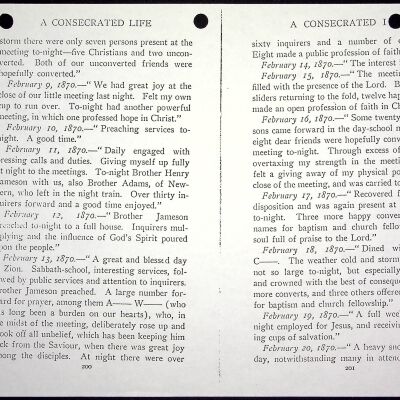 A CONSECRATED LIFE
storm there were only seven persons present at the
meeting to-night—five Christians and two uncon-
verted. Both of our unconverted friends were
hopefully converted."
February 9, 1870.—"We had great joy at the
close of our little meeting last night. Felt my own
cup to run over. To-night had another powerful
meeting, in which one professed hope in Christ."
February 10, 1870.—"Preaching services to-
night. A good time."
February 11, 1870.—"Daily engaged with
pressing calls and duties. Giving myself up fully
at night to the meetings. To-night Brother Henry
Jameson with us, also Brother Adams, of New-
ern, who left in the night train. Over thirty in-
quirers forward and a good time enjoyed."
February 12, 1870.—"Brother Jameson
reached to-night to a full house. Inquirers mul-
plying and the influence of God's Spirit poured
upon the people."
February 13, 1870.—"A great and blessed day
Zion. Sabbath-school, interesting services, fol-
wed by public services and attention to inquirers.
rother Jameson preached. A large number for-
ard for prayer, among them A—— W—— (who
as long been a burden on our hearts), who, in
e midst of the meeting, deliberately rose up and
ook off all unbelief, which has been keeping him
ck from the Saviour, when there was great joy
mong the disciples. At night there were over
200
A CONSECRATED
sixty inquirers and a number of
Eight made a public profession of faith
February 14, 1870.—"The interest
February 15, 1870.—"The meeti
filled with the presence of the Lord. B
sliders returning to the fold, twelve hap
made an open profession of faith in C
February 16, 1870.—"Some twenty
sons came forward in the day-school m
eight dear friends were hopefully conv
meeting to-night. Through excess of
overtaxing my strength in the meeti
felt a giving away of my physical po
close of the meeting, and was carried to
February 17, 1870.—"Recovered f
disposition and was again present at
to-night. Three more happy conver
names for baptism and church fellow
soul full of praise to the Lord."
February 18, 1870.—"Dined wi
C——. The weather cold and storm
not so large to-night, but especially
and crowned with the best of conseque
more converts, and three others offere
for baptism and church fellowship."
February 19, 1870.—"A full week
night employed for Jesus, and receivin
ing cups of salvation."
February 20, 1870.—"A heavy sno
day, notwithstanding many in atten
201